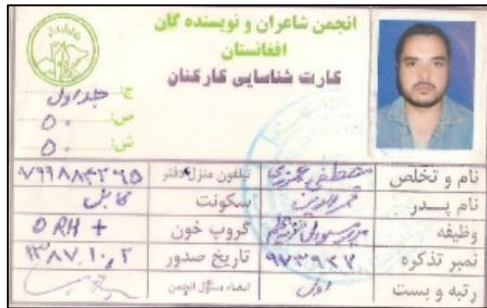 انجمن شاعران و نویسنده گان
افغانستان
کارت شناسایی کارکنان
ج: جلد اول
ص: ۵۰
ش: ۵۰
نام و تخلص مصطفی عمرزی تیلفون منزل دفتر
نام پدر قمرالدین سکونت کابل
وظیفه گروپ خون O RH +
نمبر تذکره تاریخ صدور ۱۳۸۷.۱۰.۲
رتبه و بست اول امضاء مسؤل انجمن